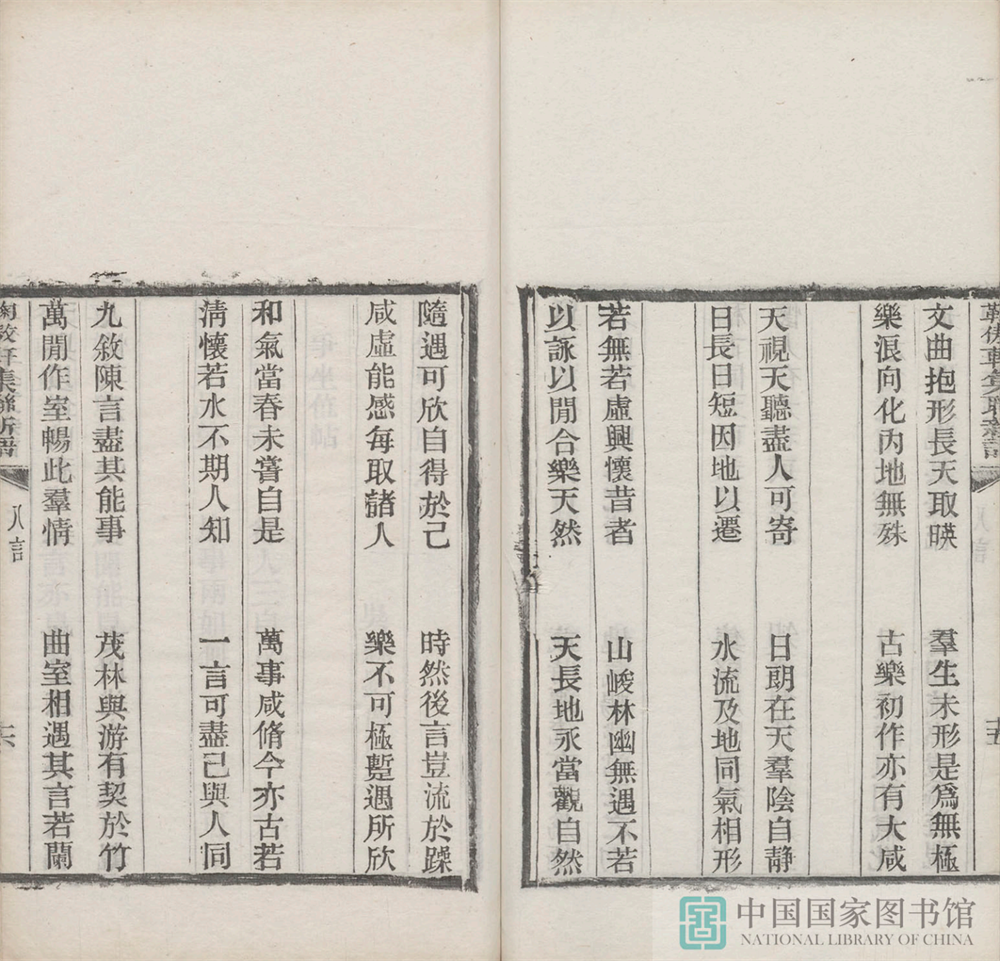 文曲抱形長天取暎　羣生未形是爲無極
樂浪向化內地無殊　古樂初作亦有大咸
天視天聽盡人可寄　日朗在天羣陰自靜
日長日短因地以遷　水流及地同氣相形
若無若虛興懷昔者　山峻林幽無遇不若
以詠以閒合樂天然　天長地永當觀自然
隨遇可欣自得於己　時然後言豈流於躁
咸虛能感每取諸人　樂不可極蹔遇所欣
和氣當春未嘗自是　萬事咸脩今亦古若
淸懷若水不期人知　一言可盡己與人同
九敘陳言盡其能事　茂林與游有契於竹
萬閒作室暢此羣情　曲室相遇其言若蘭
八言
中国国家图书馆
NATIONAL LIBRARY OF CHINA